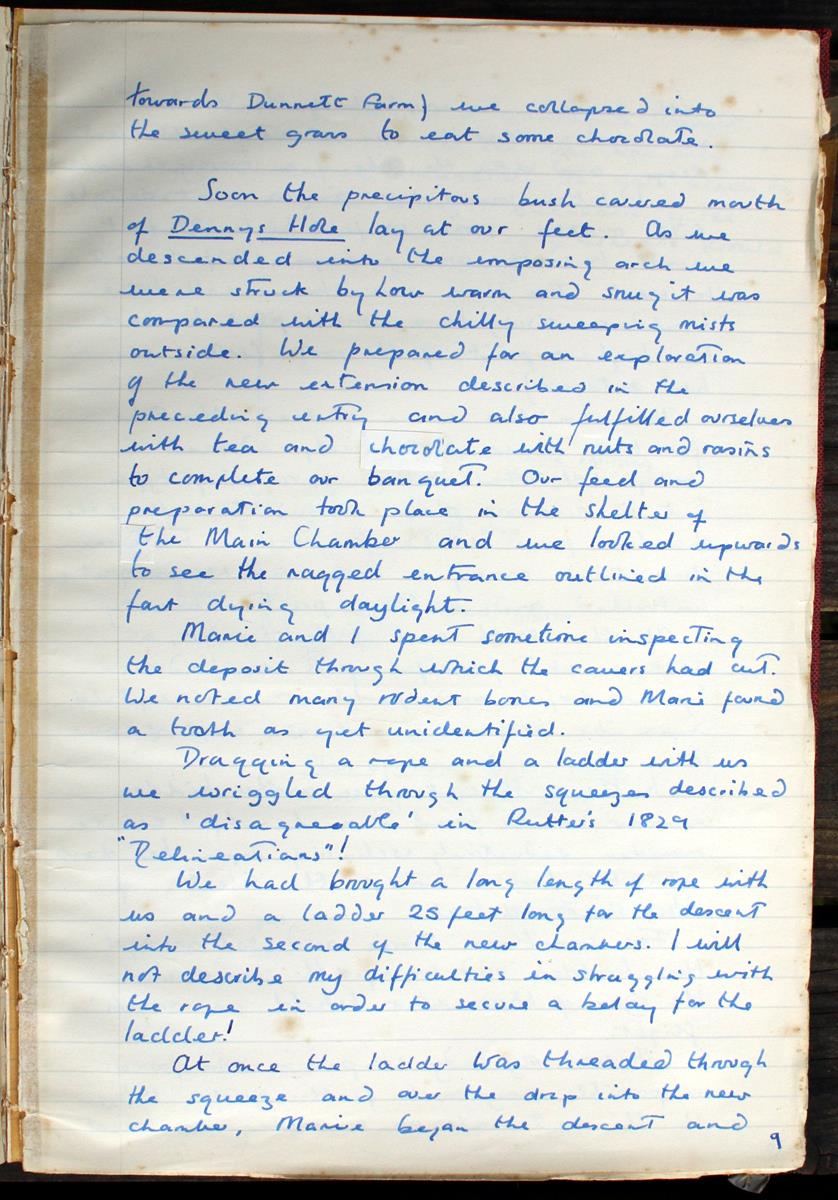 towards Dunnett Farm) we collapsed into
the sweet grass to eat some chocolate.
Soon the precipitous bush covered mouth
of Dennys Hole lay at our feet. As we
descended into the imposing arch we
were struck by how warm and snug it was
compared with the chilly sweeping mists
outside. We prepared for an exploration
of the new extension described in the
preceding entry and also fulfilled ourselves
with tea and chocolate with nuts and rasins
to complete our banquet. Our feed and
preparation took place in the shelter of
the Main Chamber and we looked upwards
to see the ragged entrance outlined in the
fast dying daylight.
Marie and I spent sometime inspecting
the deposit through which the cavers had cut.
We noted many rodent bones and Marie found
a tooth as yet unidentified.
Dragging a rope and a ladder with us
we wriggled through the squeezes described
as 'disagreeable' in Rutter's 1829
"Delineations"!
We had brought a long length of rope with
us and a ladder 25 feet long for the descent
into the second of the new chambers. I will
not describe my difficulties in struggling with
the rope in order to secure a belay for the
ladder!
At once the ladder was threaded through
the squeeze and over the drop into the new
chamber, Marie began the descent and
9